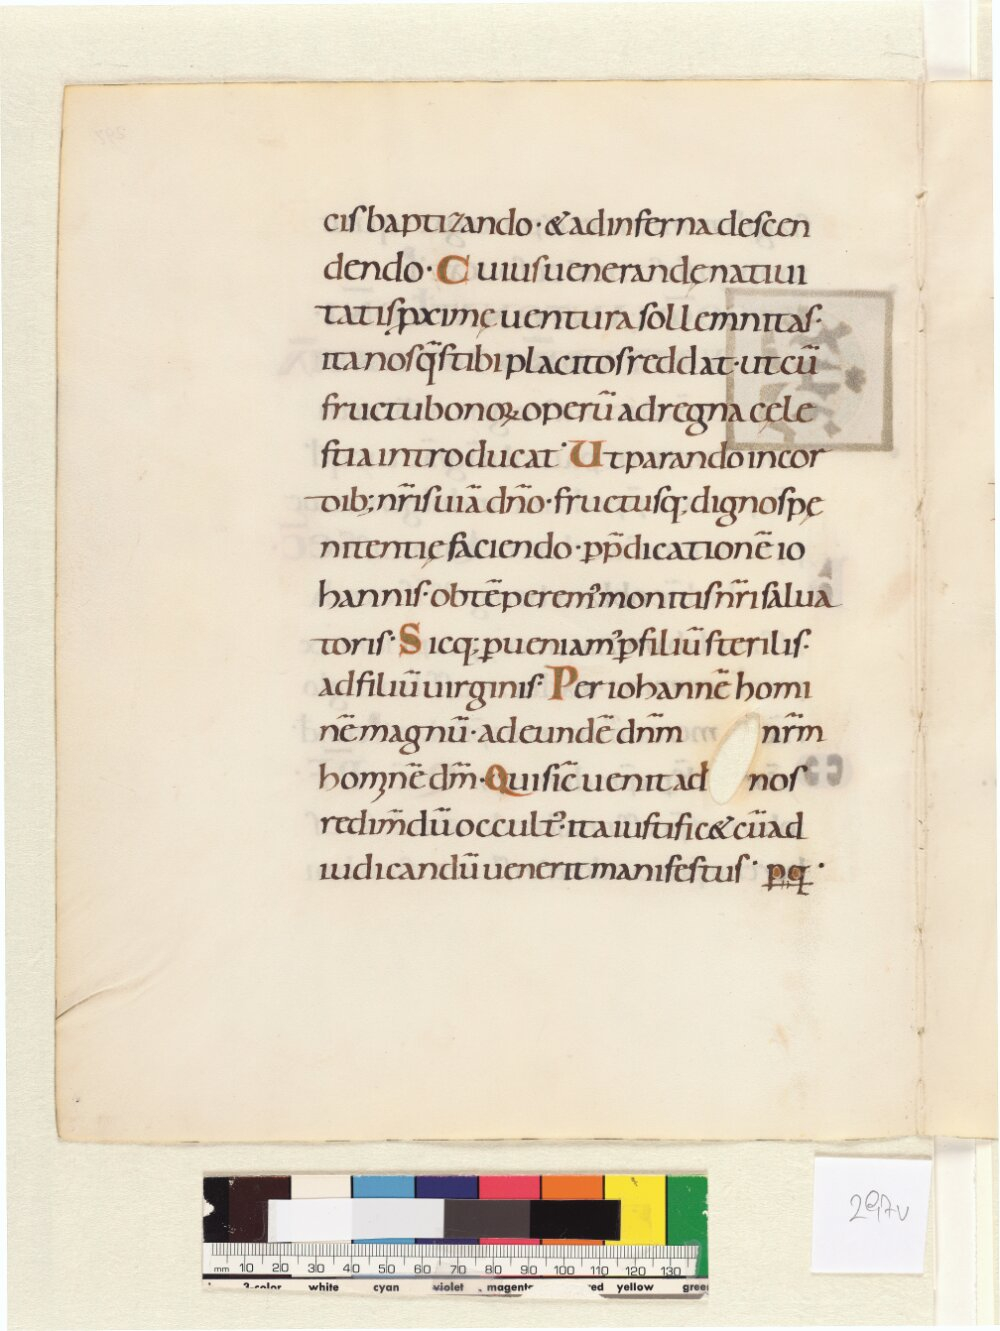 cisbaptizando·&adinfernadescen
dendo·Cuiusuenerandęnatiui
tatisꝓximęuenturasollemnitas·
itanosq̄stibiplacitosreddat·utcū
fructubonoꝝoperūadregnacęle
stiaintroducat·Utparandoincor
dib;nr̄isuiā dn̄o·fructusq;dignospę
nitentięfaciendo·p̄dicationē io
hannis·obtēperem᾽monitisnr̄isalua
toris·Sicq;ꝑueniam᾽ꝑfiliūsterilis·
adfiliūuirginis·Per iohannē homi
nē magnū·adeundē dn̄m nr̄m
hominē dm̄·Quisic̄uenitad nos
redim̄dūoccult᾽·itaiustific&cūad
iudicandūueneritmanifestus·pq·
297v
mm 10 20 30 40 50 60 70 80 90 100 110 120 130
3-color white cyan violet magenta red yellow green